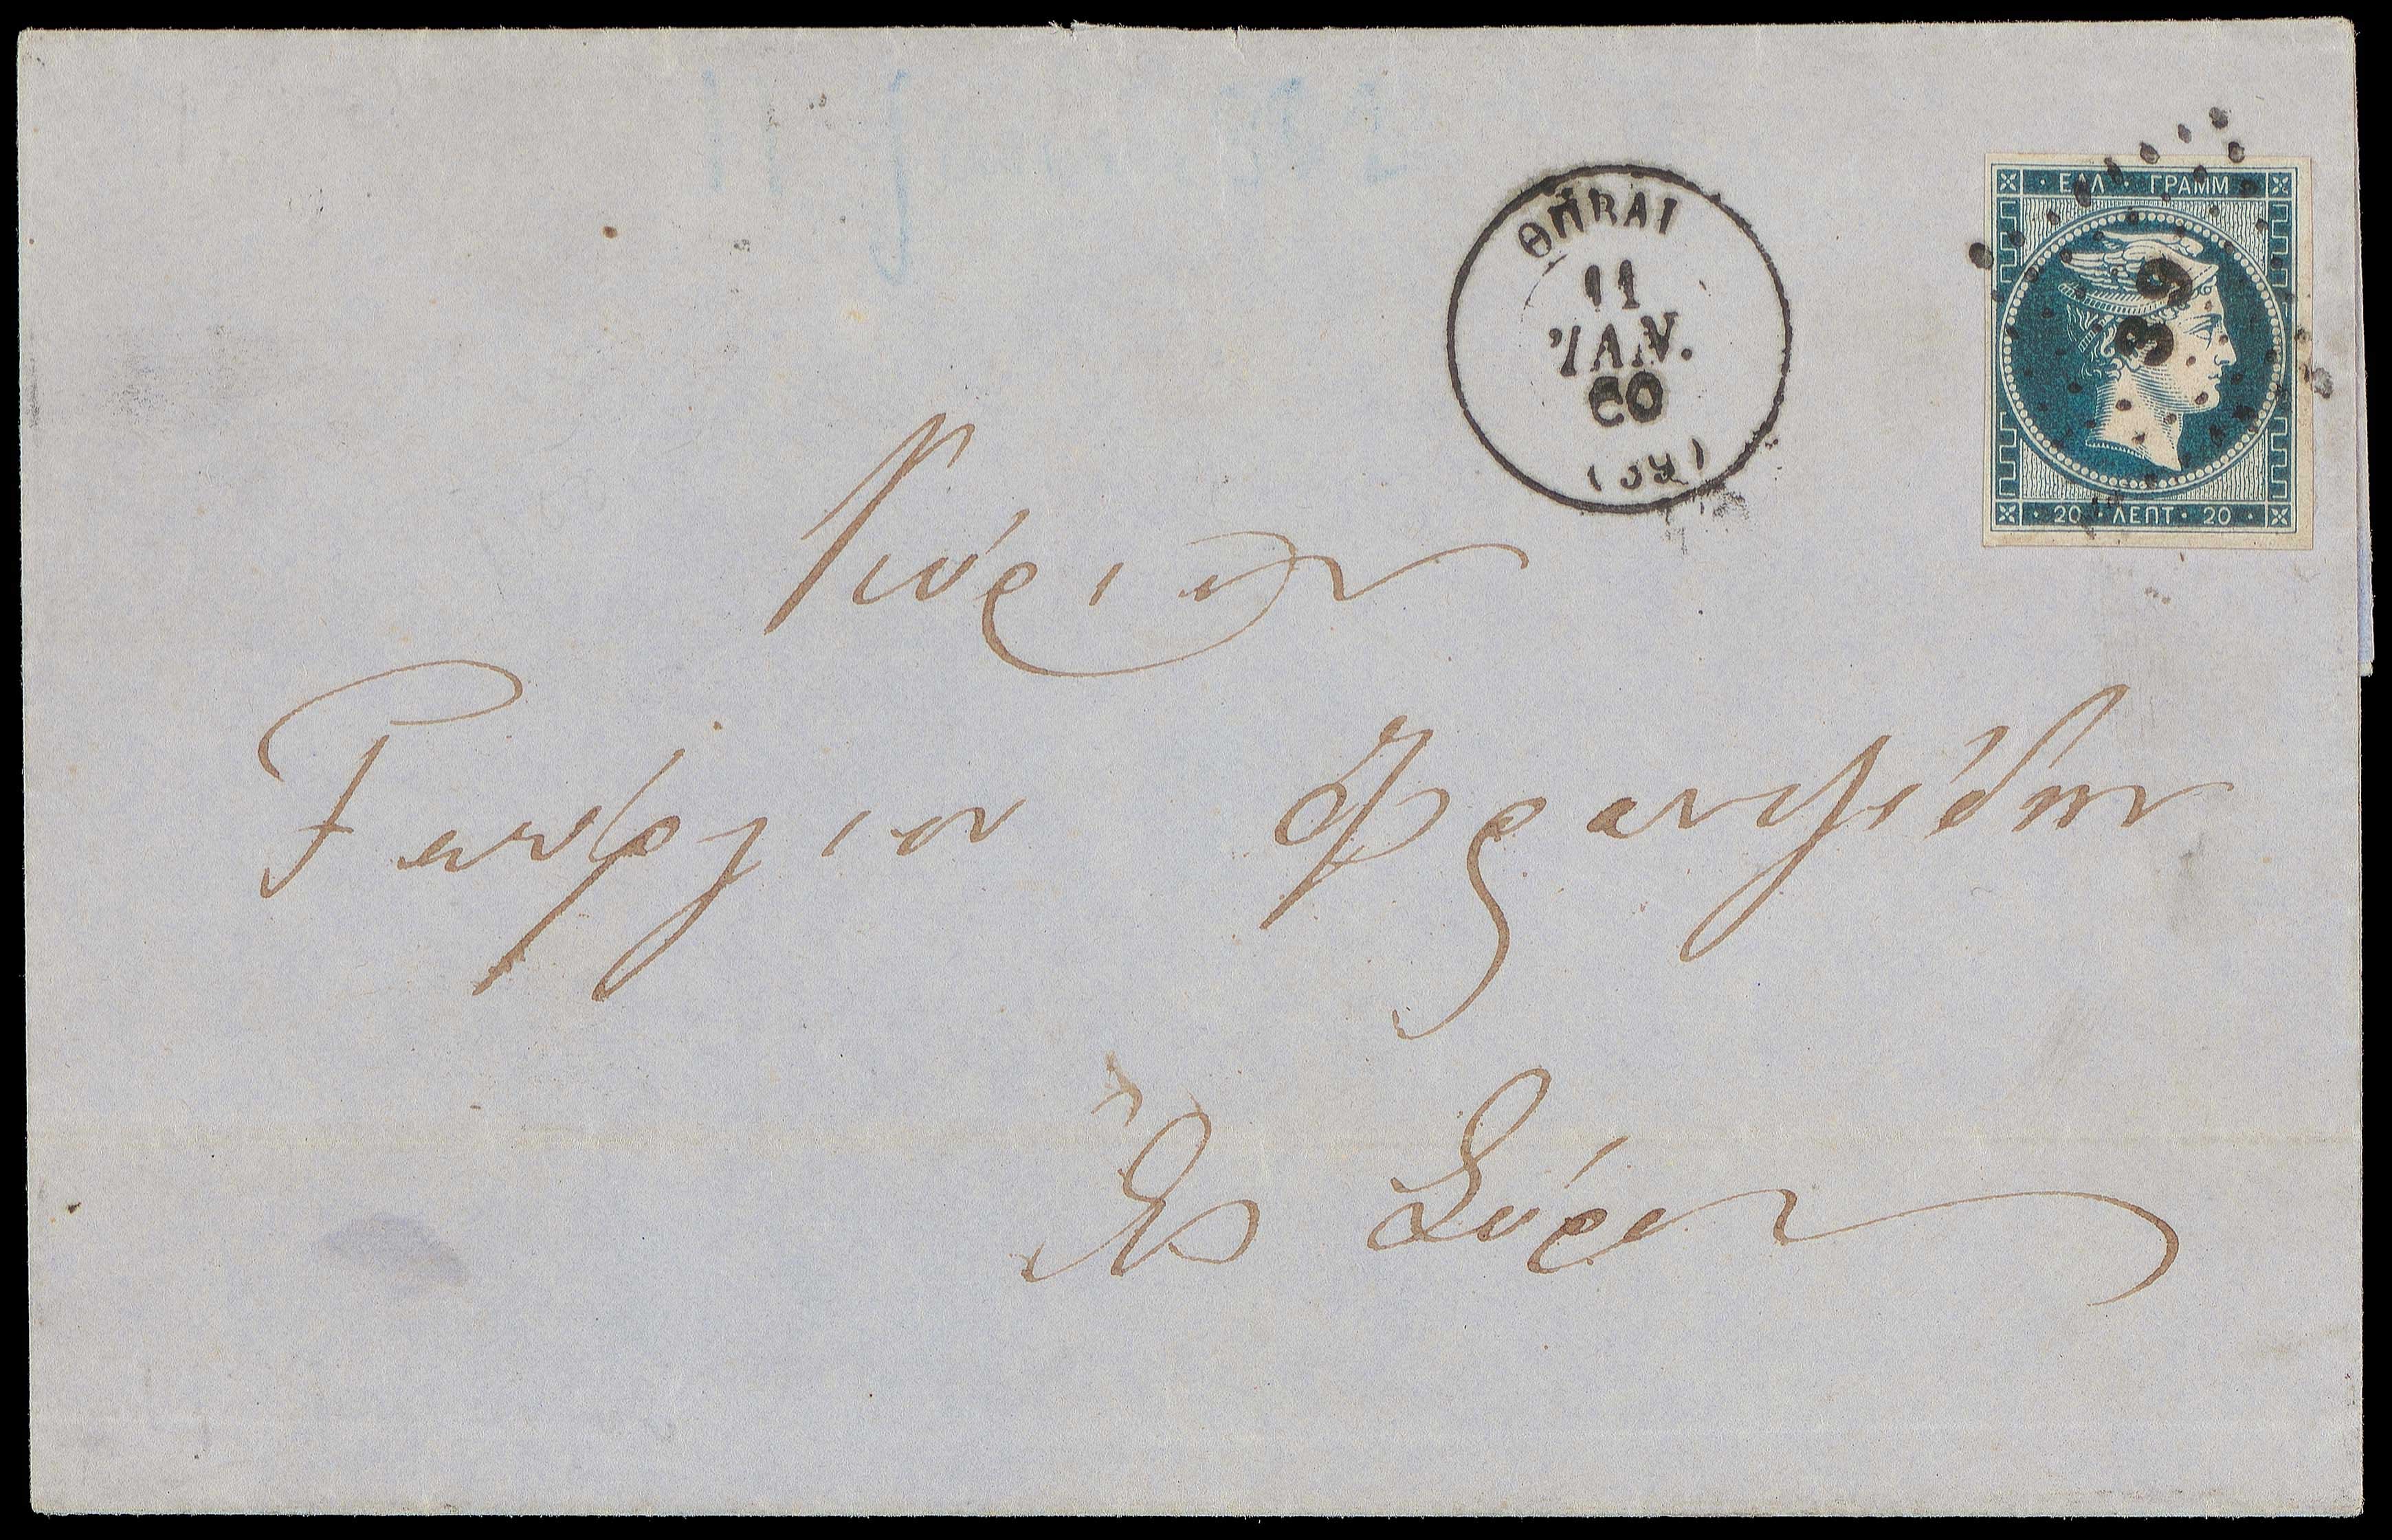 ΕΛΛ · ΓΡΑΜΜ
39
20 · ΛΕΠΤ · 20
ΘΗΒΑΙ
11
ἸΑΝ.
60
(39)
Κύριον
Γεώργιον Φραντζίδην
Εἰς Σύραν